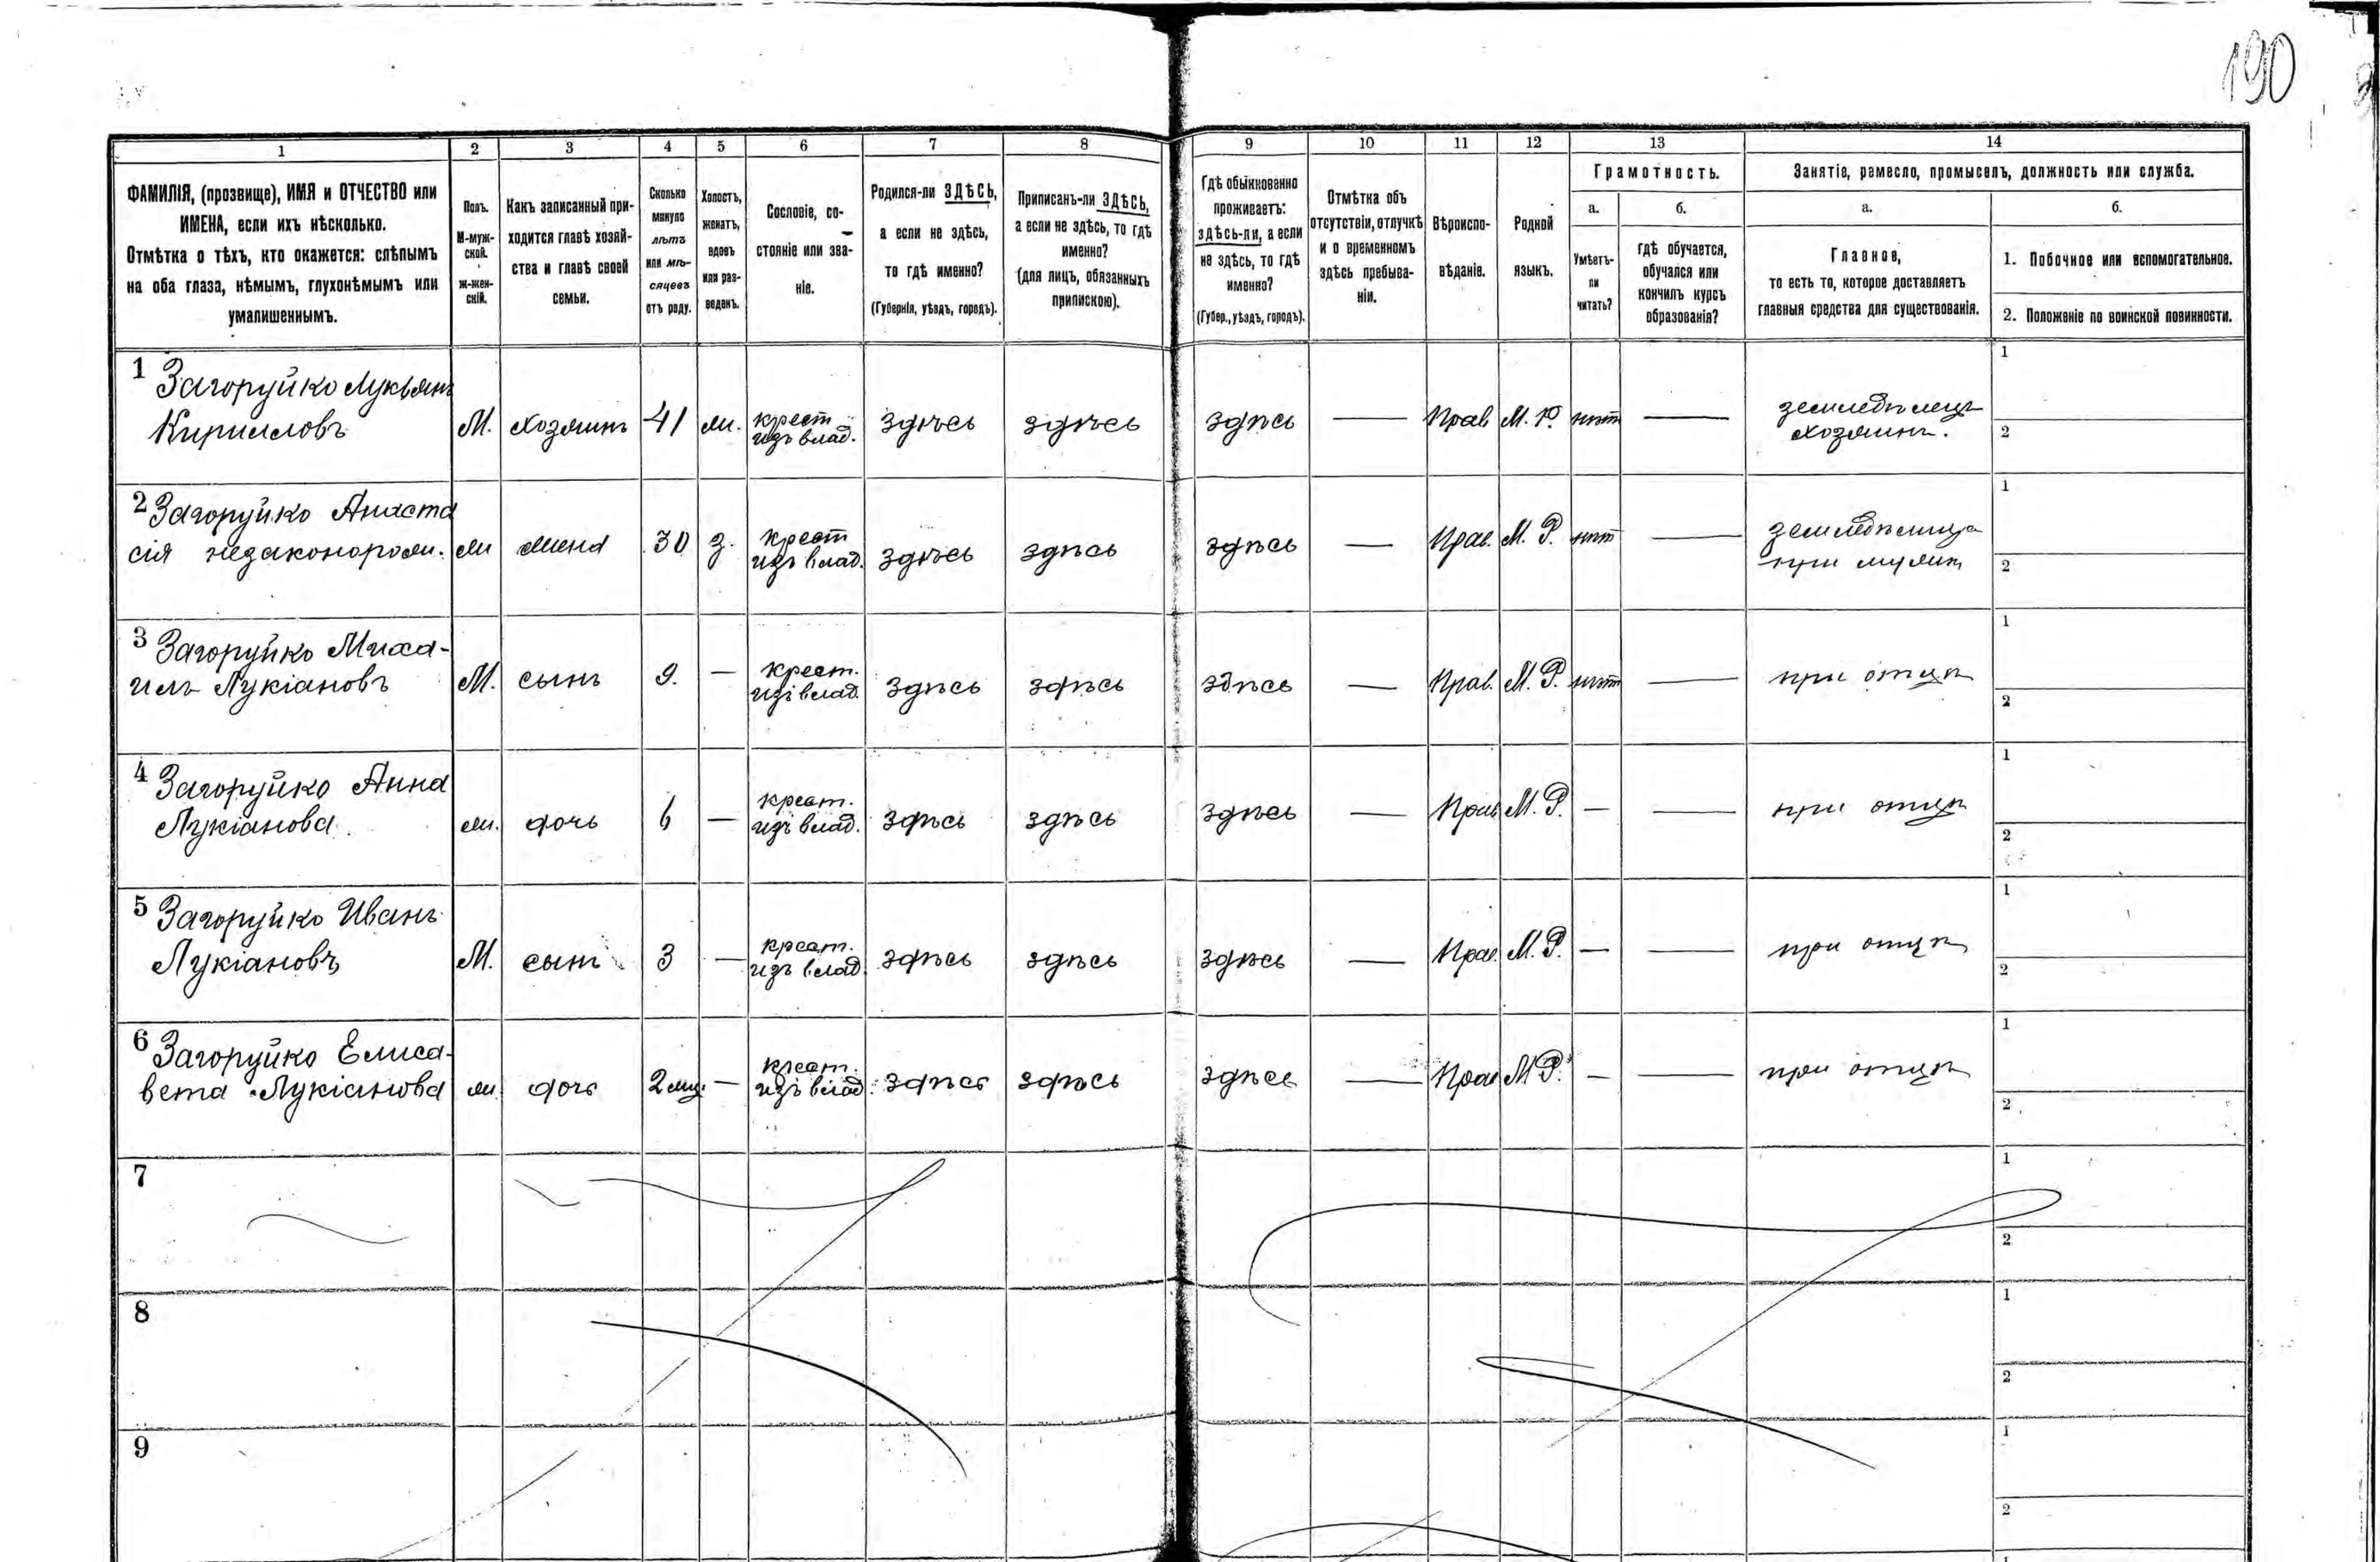 190
1
2
3
4
5
6
7
8
9
10
11
12
13
14
ФАМИЛІЯ, (прозвище), ИМЯ и ОТЧЕСТВО или
ИМЕНА, если ихъ нѣсколько.
Отмѣтка о тѣхъ, кто окажется: слѣпымъ
на оба глаза, нѣмымъ, глухонѣмымъ или
умалишеннымъ.
Полъ.
М-муж-
ской.
ж-жен-
скій.
Какъ записанный при-
ходится главѣ хозяй-
ства и главѣ своей
семьи.
Сколько
минуло
лѣтъ
или мѣ-
сяцевъ
отъ роду.
Холостъ,
женатъ,
вдовъ
или раз-
веденъ.
Сословіе, со-
стояніе или зва-
ніе.
Родился-ли ЗДѢСЬ,
а если не здѣсь,
то гдѣ именно?
(Губернія, уѣздъ, городъ).
Приписанъ-ли ЗДѢСЬ,
а если не здѣсь, то гдѣ
именно?
(для лицъ, обязанныхъ
припискою).
Гдѣ обыкновенно
проживаетъ:
здѣсь-ли, а если
не здѣсь, то гдѣ
именно?
(Губер., уѣздъ, городъ).
Отмѣтка объ
отсутствіи, отлучкѣ
и о временномъ
здѣсь пребыва-
ніи.
Вѣроиспо-
вѣданіе.
Родной
языкъ.
Грамотность.
а.
Умѣетъ-
ли
читать?
б.
гдѣ обучается,
обучался или
кончилъ курсъ
образованія?
Занятіе, ремесло, промыселъ, должность или служба.
а.
Главное,
то есть то, которое доставляетъ
главныя средства для существованія.
б.
1. Побочное или вспомогательное.
2. Положеніе по воинской повинности.
1 Загоруйко Лукьянъ
Кирилловъ
М. хозяинъ 41 ж. крест. изъ влад. здѣсь здѣсь здѣсь — Прав М. Р. нѣт — земледѣлецъ хозяинъ.
1
2
2 Загоруйко Анаста
сія незаконорож. ж жена 30 з. крест изъ влад. здѣсь здѣсь здѣсь — Прав. М. Р. нѣт — земледѣлица при мужѣ
1
2
3 Загоруйко Миха-
илъ Лукіановъ М. сынъ 9. — крест. изъ влад. здѣсь здѣсь здѣсь — Прав. М. Р. нѣт — при отцѣ
1
2
4 Загоруйко Анна
Лукіанова. ж. дочь 6 — крест. изъ влад. здѣсь здѣсь здѣсь — Прав М. Р. — — при отцѣ
1
2
5 Загоруйко Иванъ
Лукіановъ М. сынъ 3 — крест. изъ влад здѣсь здѣсь здѣсь — Прав. М. Р. — — при отцѣ
1
2
6 Загоруйко Елиса-
вета Лукіанова ж. дочь 2 мц. — крест. изъ влад. здѣсь здѣсь здѣсь — Прав М. Р. — — при отцѣ
1
2
7
1
2
8
1
2
9
1
2